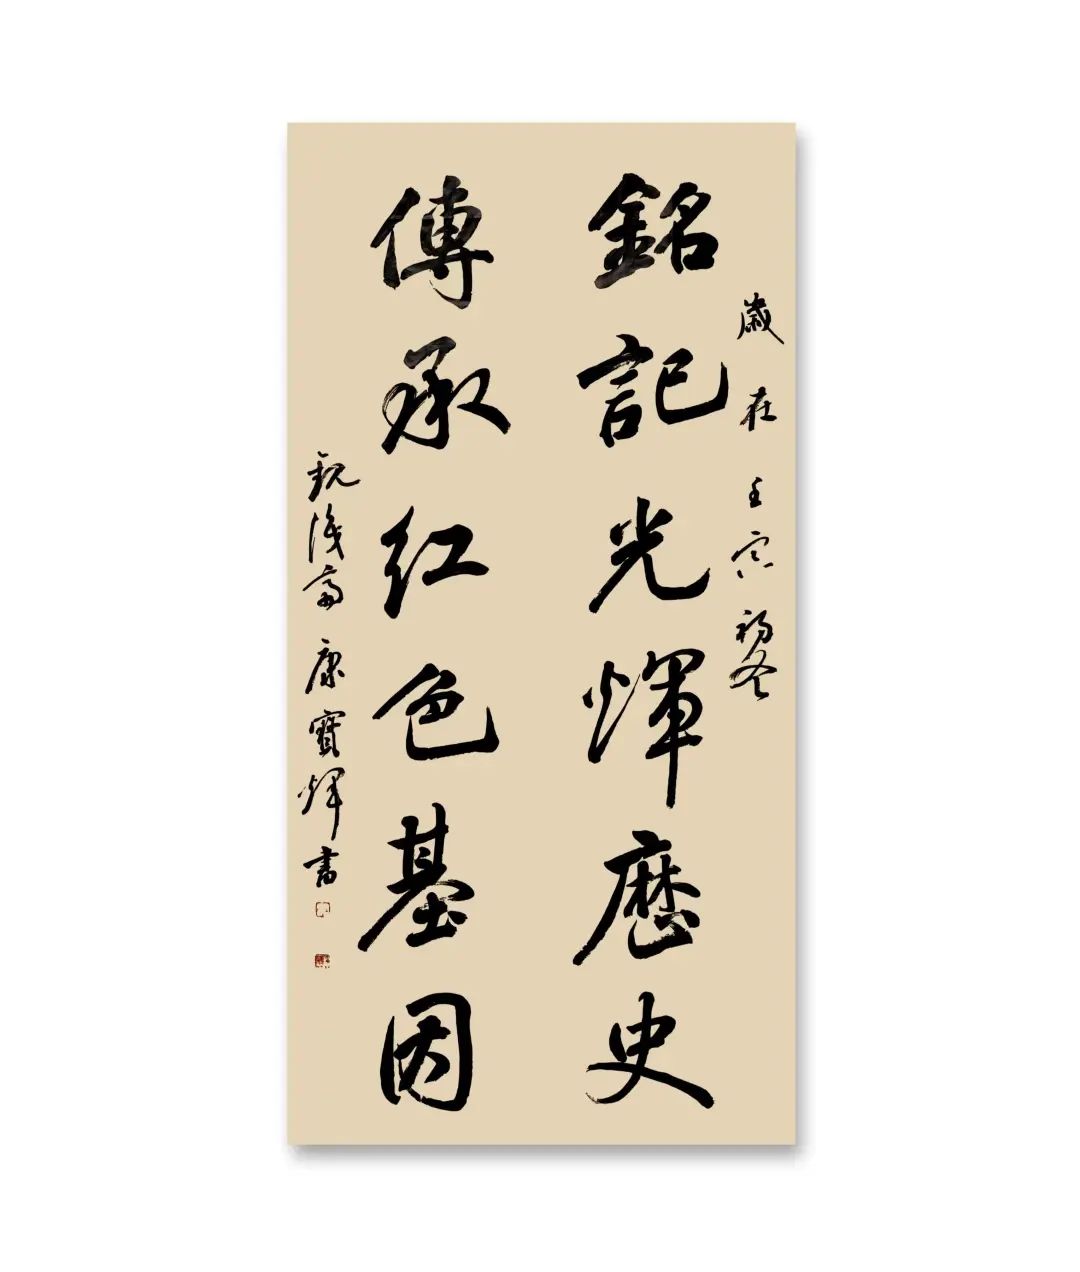 歲在壬寅初冬
銘記光輝歷史
傳承紅色基因
康寶輝書